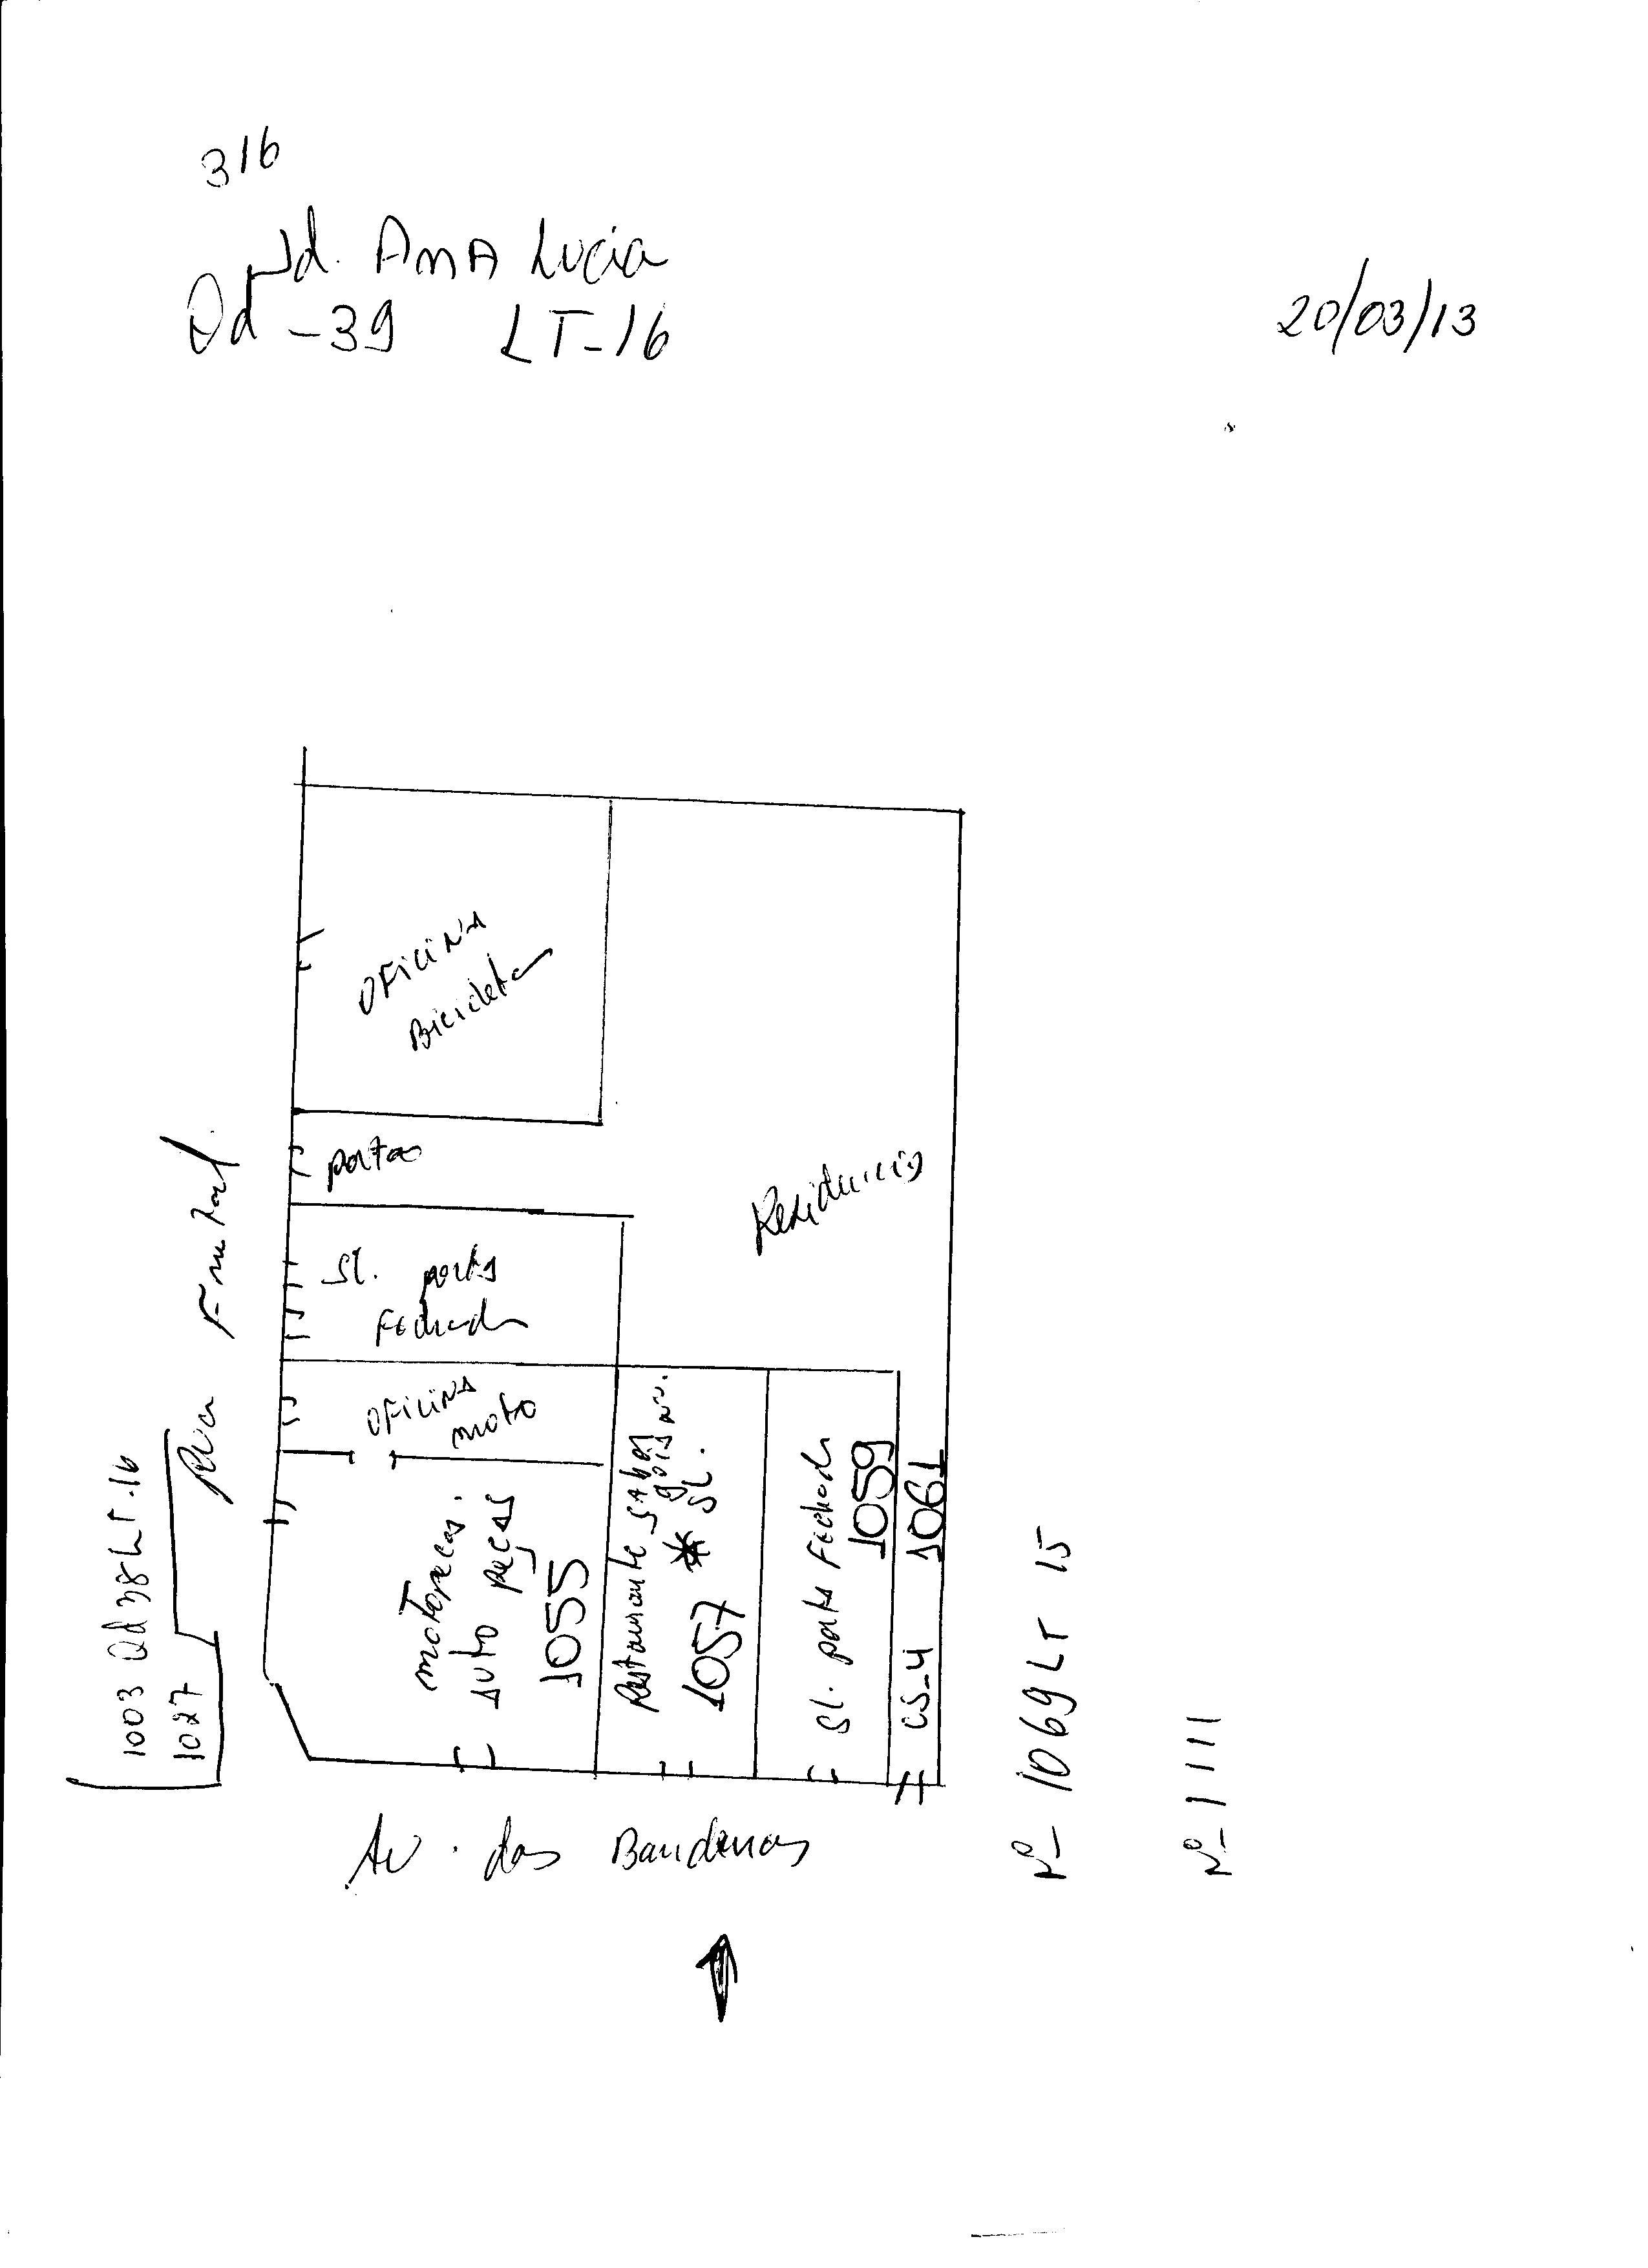 316
Jd. AnA Lucia
Qd - 39 LT-16
20/03/13
OFICINA
Bicicleta
portao
Residencia
Sl. porta
Fechada
OFICINA
moto
Rua Frutal
1003 Qd 38 LT.16
1027
motopecas.
auto peças
1055
Restaurante Sabor
goiano.
1057 * SL.
Sl. porta Fechada
1059
CS-4 1061
Nº 1069 LT 15
Nº 1111
Av. das Bandeiras